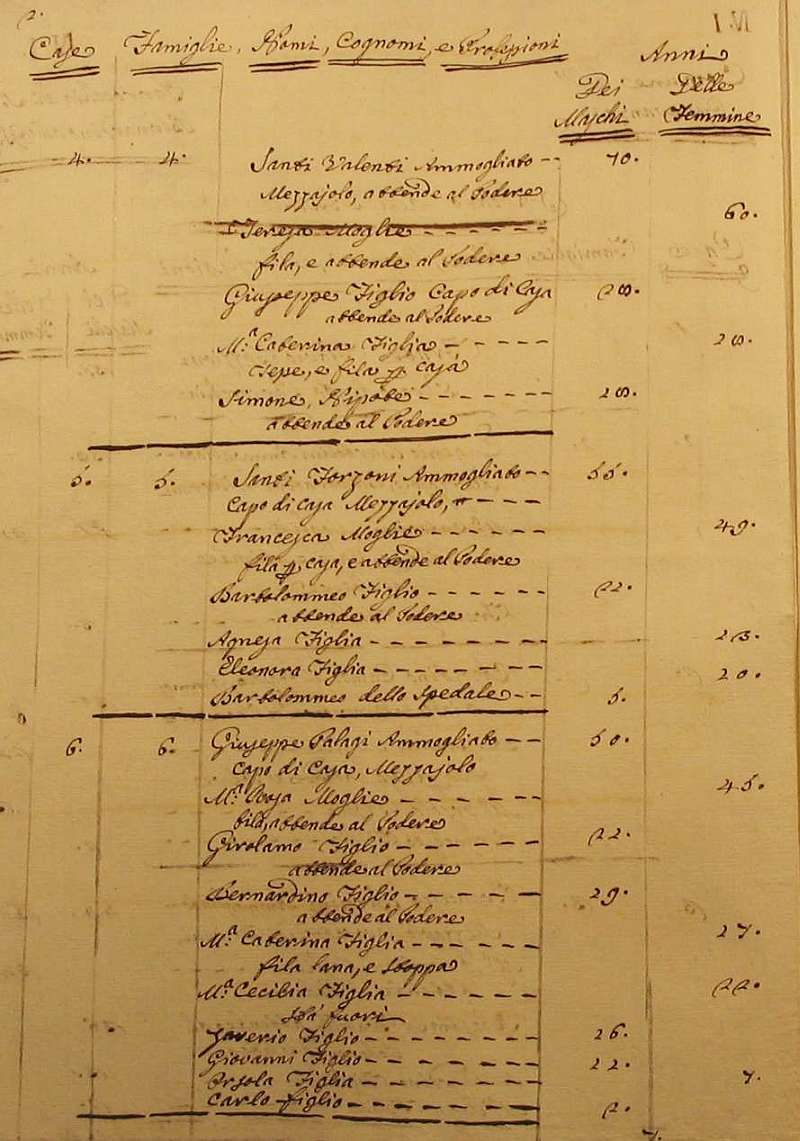 2.
N. 1
Case Famiglie, Nomi, Cognomi, e Professioni Anni
Dei Delle
Maschi Femmine
4. 4. Santi Valenti Ammogliato -- 70.
Mezzajolo, attende al Podere
Teresa Moglie - - - - - 60.
fila, e attende al Podere
Giuseppe Figlio Capo di Casa 28.
attende al Podere
M.ª Caterina Figlia - - - - 28.
Tesse, e fila p casa
Simone, Nipote - - - - - - 28.
attende al Podere
5. 5. Santi Forzoni Ammogliato -- 55.
Capo di Casa Mezzajolo, - - - -
Francesca Moglie - - - - - 49.
fila p casa, e attende al Podere
Bartolommeo Figlio - - - - - 22.
attende al Podere
Agnesa Figlia - - - - - - - 23.
Eleonora Figlia - - - - - - - 20.
Bartolommeo dello Spedale -- 5.
6. 6. Giuseppe Palagi Ammogliato -- 50.
Capo di Casa, Mezzajolo
M.ª Rosa Moglie - - - - - 45.
fila, attende al Podere
Girolamo Figlio - - - - - - 22.
attende al Podere
Bernardino Figlio - - - - - 29.
attende al Podere
M.ª Caterina Figlia - - - - - 27.
fila lana, e stoppa
M.ª Cecilia Figlia - - - - - 22.
stà fuori
Saverio Figlio - - - - - - - 26.
Giovanni Figlio - - - - - - 22.
Orsola Figlia - - - - - - - 7.
Carlo figlio - - - - - - - 2.
7.